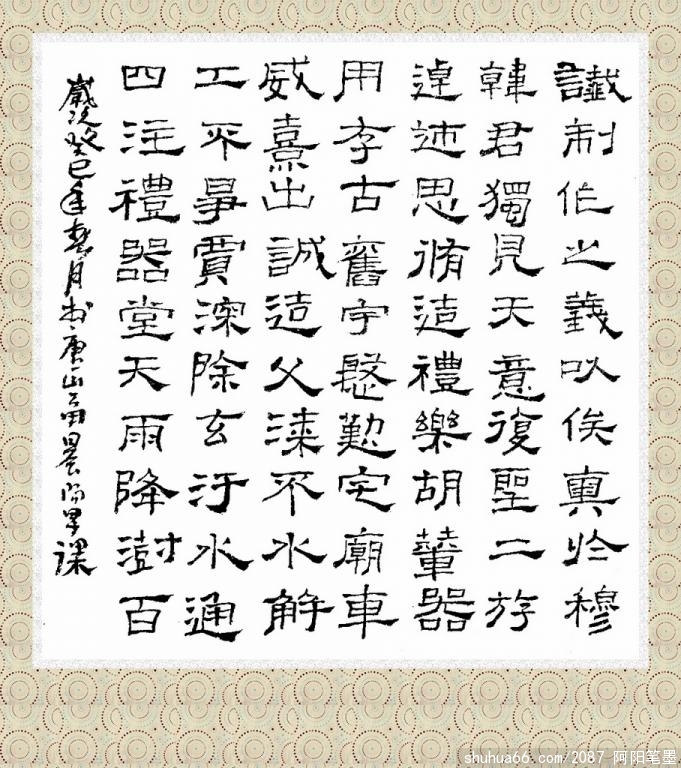 讖制作之義以俟奧於穆
韓君獨見天意復聖二族
逴迹思脩造禮樂胡輦器
用存古舊宇慇懃宅廟車
威熹出誠造父漆不水解
工不爭賈深除玄汙水通
四注禮器堂天雨降澍百
歲次癸巳年月书唐山晨阳早课
shuhua66.com/2087 阿阳笔墨